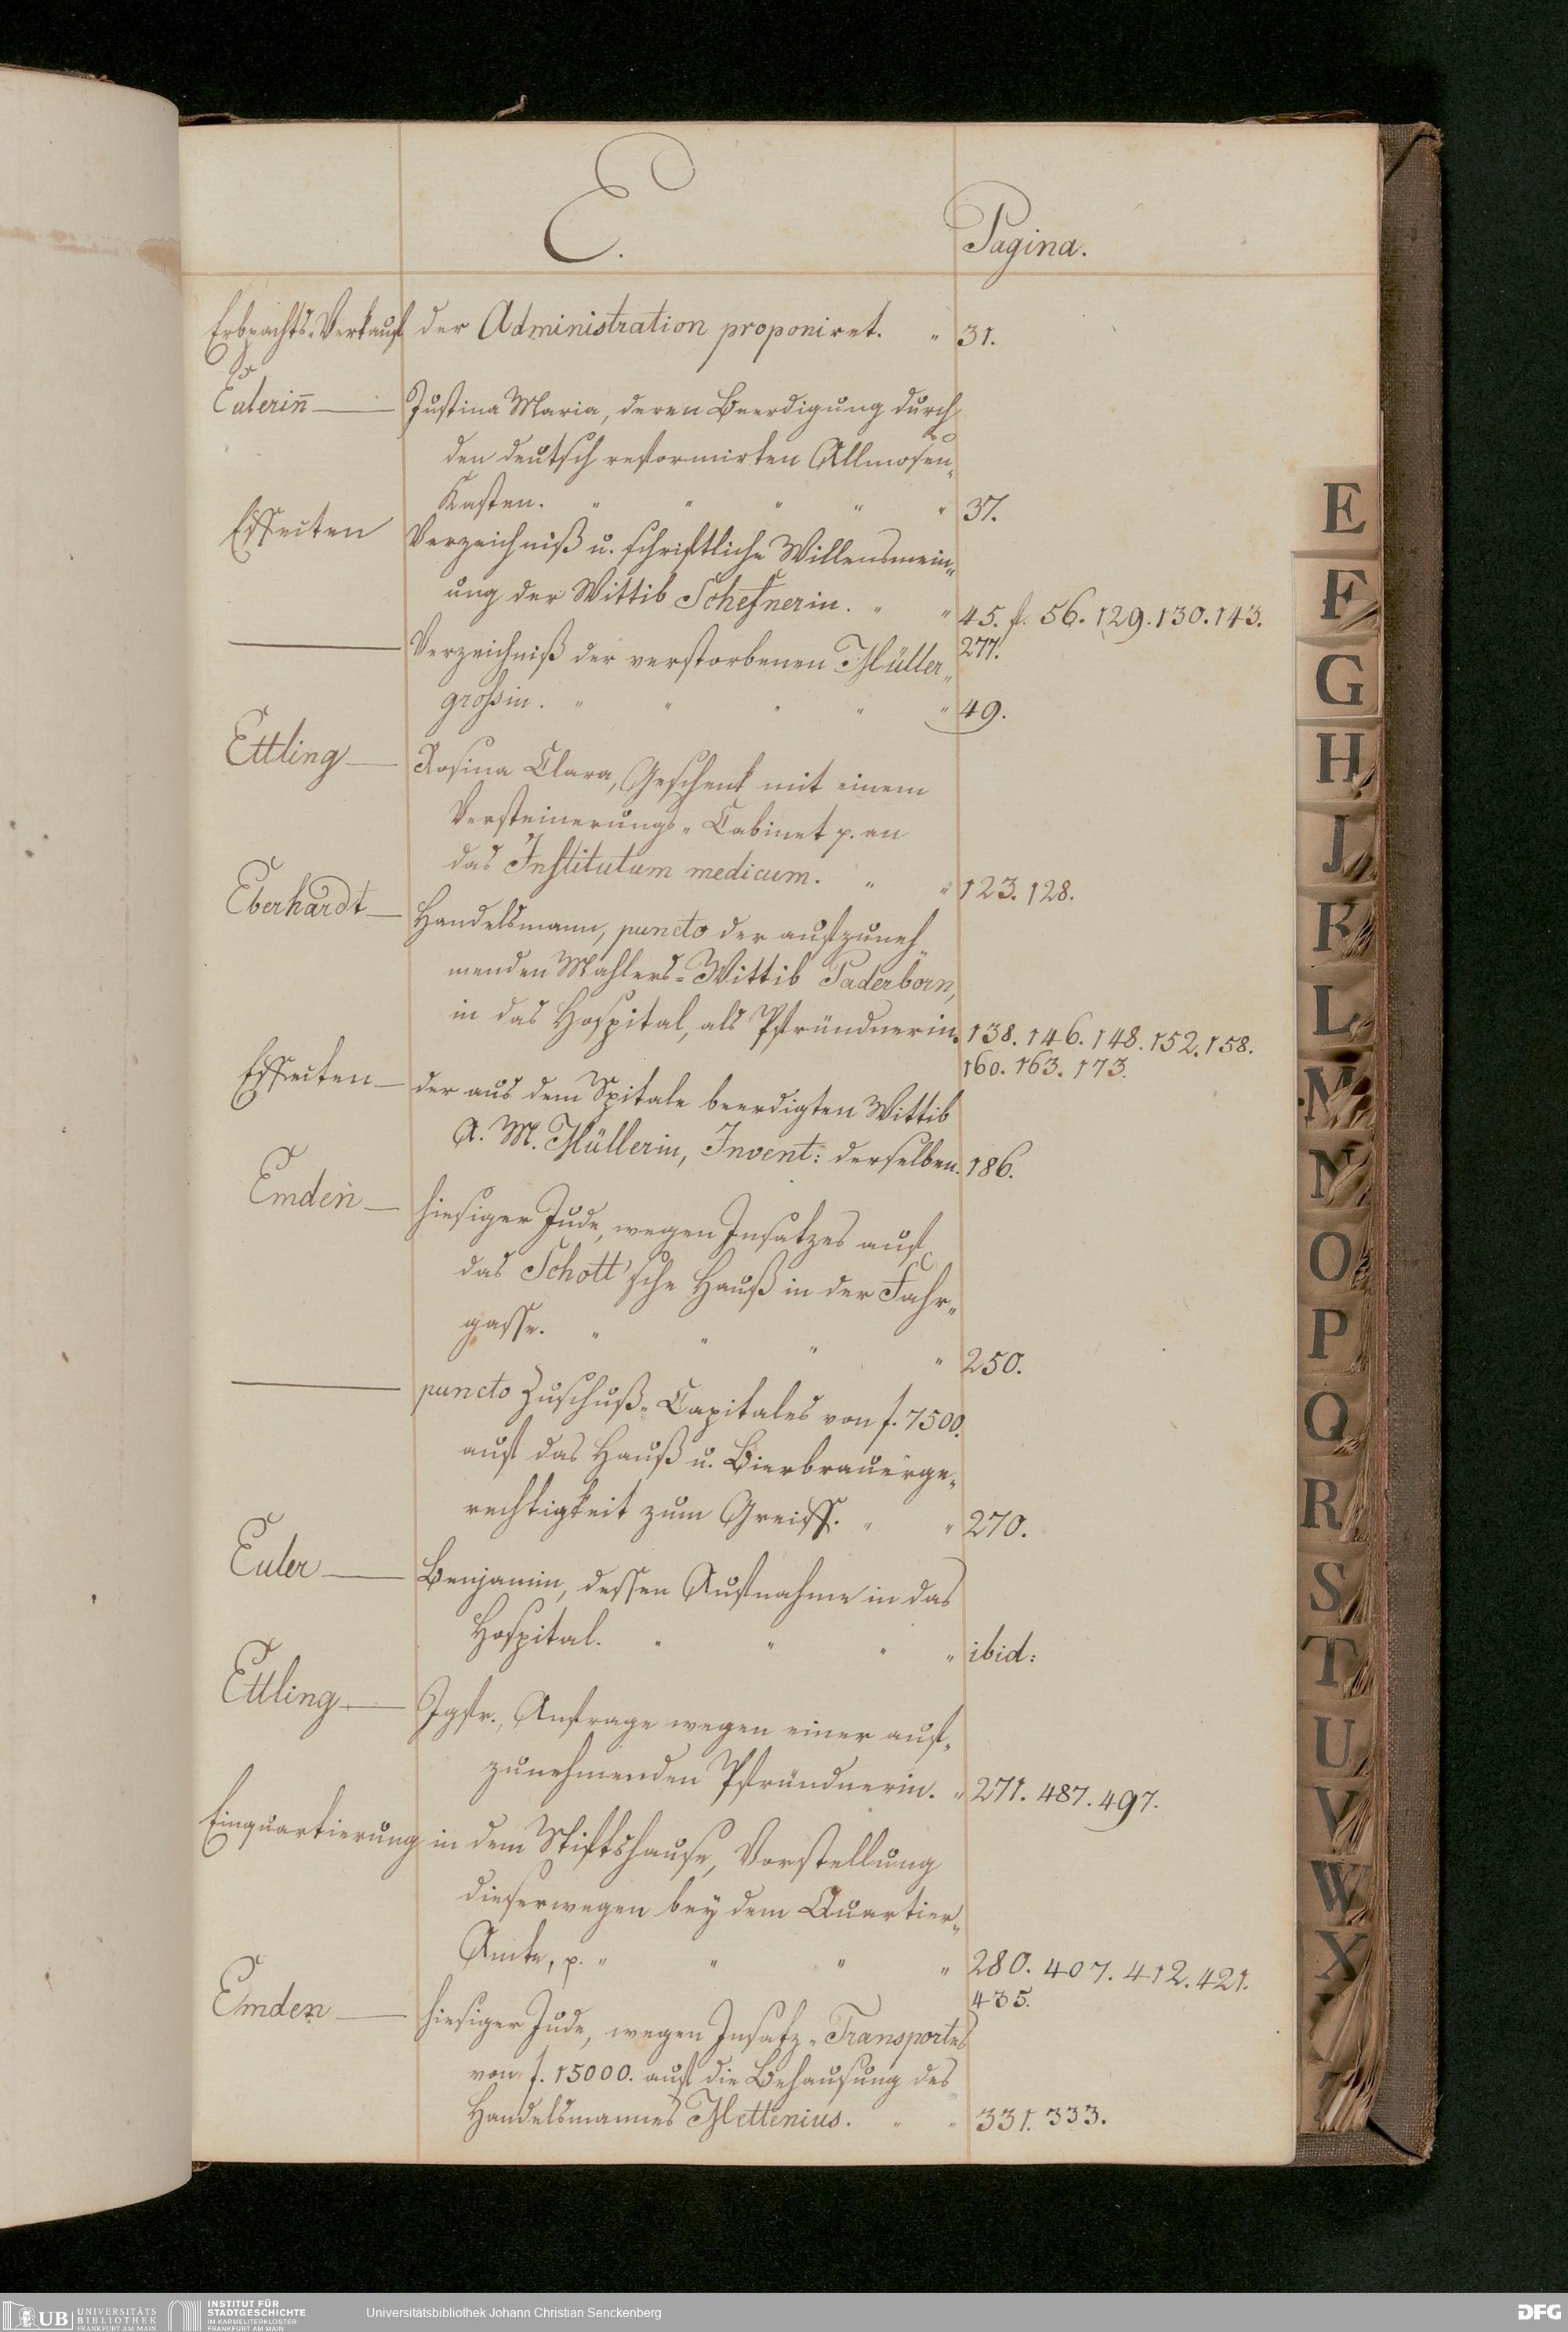 E.
Pagina.
Erbpachts-Verkauf der Administration proponiret. " 31.
Eulerin̄ — Justina Maria, deren Beerdigung durch
den deutsch reformirten Allmosen„
Kasten. " " " " " 37.
Effecten Verzeichniß u. schriftliche Willensmein„
ung der Wittib Schefnerin. " " 45. f. 56. 129. 130. 143.
277.
— Verzeichniß der verstorbenen Müller„
großin. " " " " " 49.
Ettling — Rosina Clara, Geschenk mit einem
Versteinerungs„ Cabinet p. an
das Institutum medicum. " " 123. 128.
Eberhardt — Handelsmann, puncto der aufzuneh„
menden Mahlers-Wittib Paderborn,
in das Hospital, als Pfründnerin. 138. 146. 148. 152. 158.
160. 163. 173.
Effecten — der aus dem Spitale beerdigten Wittib
A. M. Müllerin, Invent: derselben. 186.
Emden — hiesiger Jude, wegen Insatzes auf
das Schott'sche Hauß in der Fahr„
gasse. " " " " 250.
— puncto Zuschuß„ Capitales von f. 7500.
auf das Hauß u. Bierbrauerge„
rechtigkeit zum Greiff. " " 270.
Euler — Benjamin, dessen Aufnahme in das
Hospital. " " " " ibid:
Ettling — Jgfr., Anfrage wegen einer auf„
zunehmenden Pfründnerin. " 271. 487. 497.
Einquartierung in dem Stiftshause, Vorstellung
dieserwegen bey dem Quartier„
Amte, p. " " " " 280. 407. 412. 421.
435.
Emden — hiesiger Jude, wegen Insatz„ Transportes
von f. 15000. auf die Behausung des
Handelsmannes Mettenius. " " 331. 333.
E
F
G
H
J
K
L
M
N
O
P
Q
R
S
T
U
V
W
X
UB UNIVERSITÄTS BIBLIOTHEK FRANKFURT AM MAIN
INSTITUT FÜR STADTGESCHICHTE IM KARMELITERKLOSTER FRANKFURT AM MAIN
Universitätsbibliothek Johann Christian Senckenberg
DFG